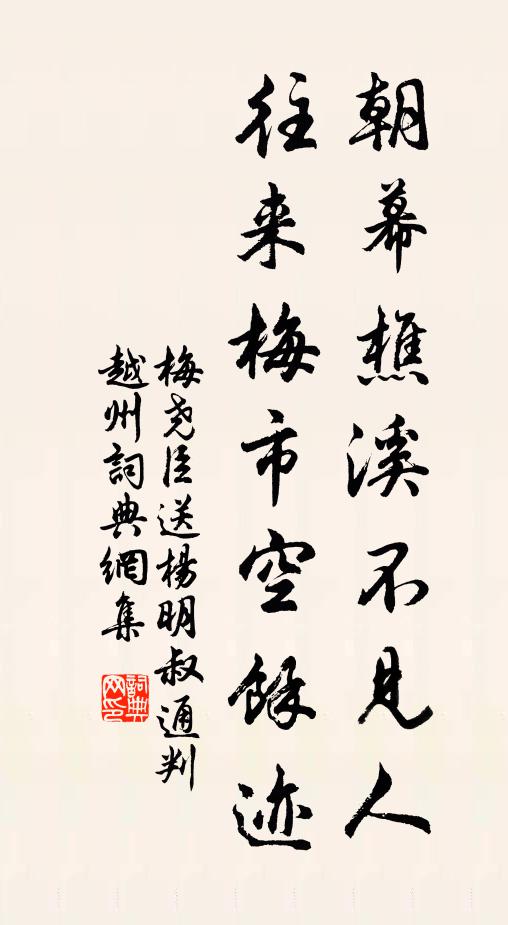 朝幕樵溪不見人
往来梅市空餘迹
梅尧臣送楊明叔通判
越州詞典網集
詞典网印